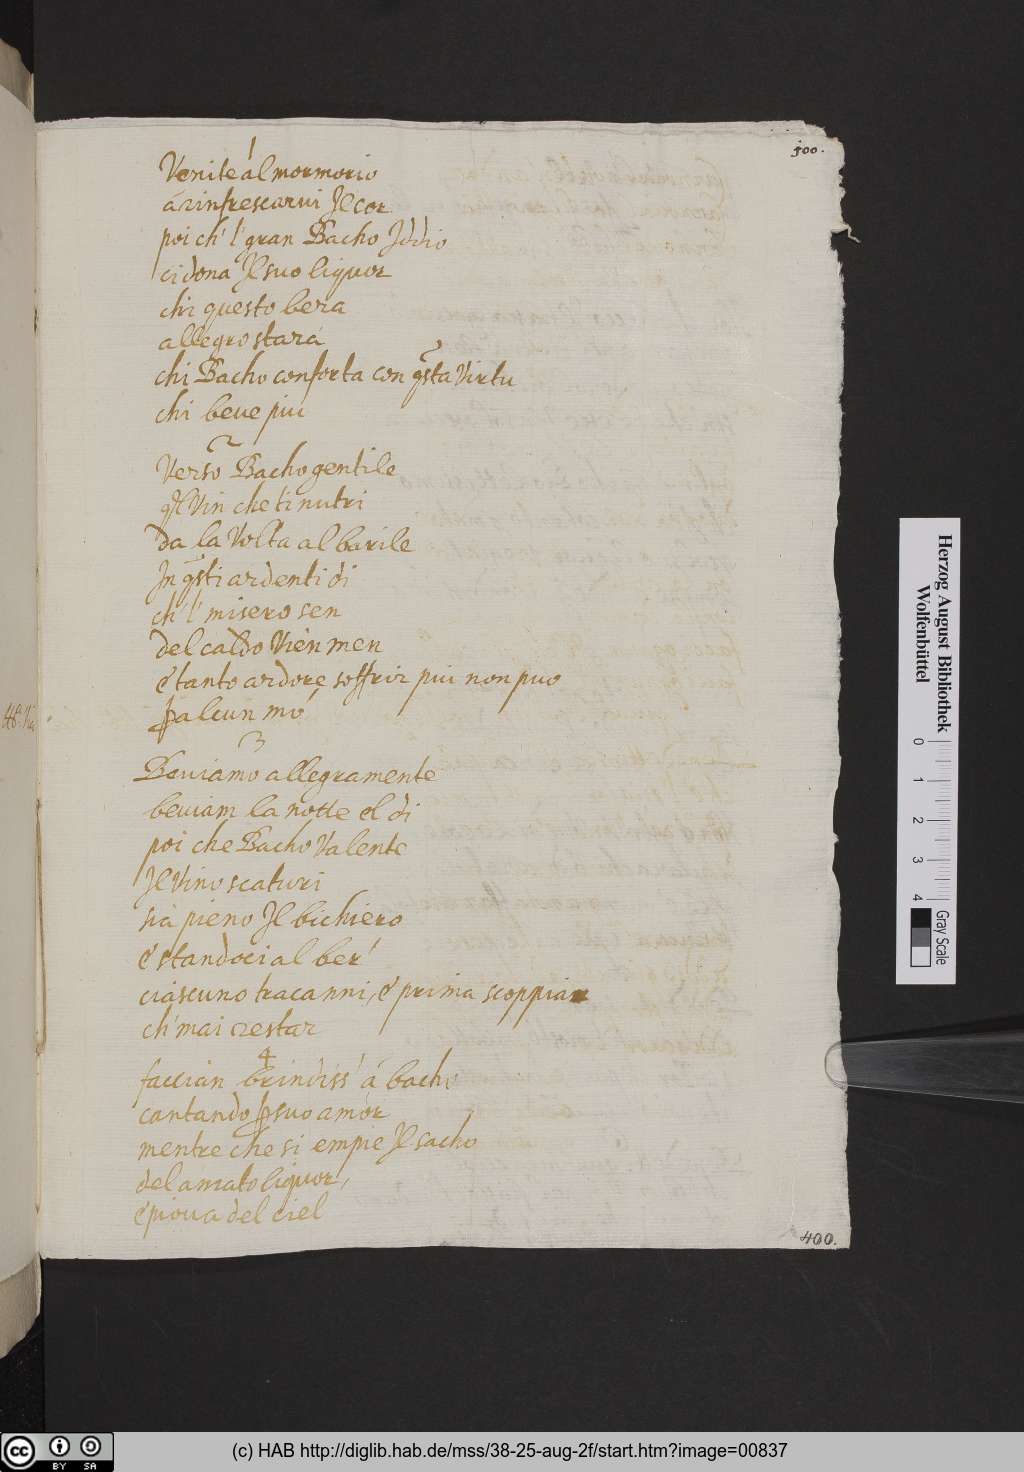 500.
1
Venite al mormorio
a rinfrescarvi Il cor
poi ch' l' gran Bacho Iddio
ci dona Il suo liquor
chi questo bera
allegro stará
chi Bacho conforta con qsta Virtu
chi beve piu
2
Verso Bacho gentile
ql Vin che ti nutri
da la Volta al barile
In qsti ardenti di
ch' l' misero sen
del caldo Vien men
é tanto ardore soffrir piu non puo
p alcun mó
3
Beviamo allegramente
beviam la notte el di
poi che Bacho Valente
Il Vino scaturi
sia pieno Il bichiero
é standoci al ber'
ciascuno tracanni, é prima scoppiar
ch' mai restar
4
faccian brindiss' á bacho
cantando p suo amor
mentre che si empie Il sacho
del amato liquor,
é piova del ciel
400.
Herzog August Bibliothek
Wolfenbüttel
0 1 2 3 4
Gray Scale
cc BY SA
(c) HAB http://diglib.hab.de/mss/38-25-aug-2f/start.htm?image=00837